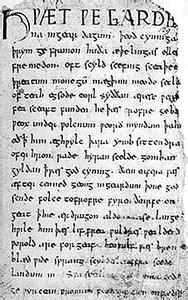 HǷÆT ǷE GARDE
na ingear dagum. þeod cyninga
þrym ge frunon huða æþelingas elle
fremedon. oft scyld scefing sceaþe
þreatum monegū mægþum meodo setla
of teah egsode eorl syððan ærest ƿear
fea sceaft funden he þæs frofre geba
ƿeox under ƿolcnum ƿeorð myndum þah
oð þ him æghƿylc þara ymb sittendra
ofer hron rade hyran scolde gomban
gyldan þ ƿæs god cyning. ðæm eafera ƿæs
æfter cenned geong in geardum þone god
sende folce tofrofre fyren ðearfe on
geat þ hie ær drugon aldor ase. lange
hƿile him þæs lif frea ƿuldres ƿealdend
ƿorold are for geaf. beoƿulf ƿæs breme
blæd ƿide sprang scyldes eafera scede
landum in
ge ƿyrcean fromum feoh giftum